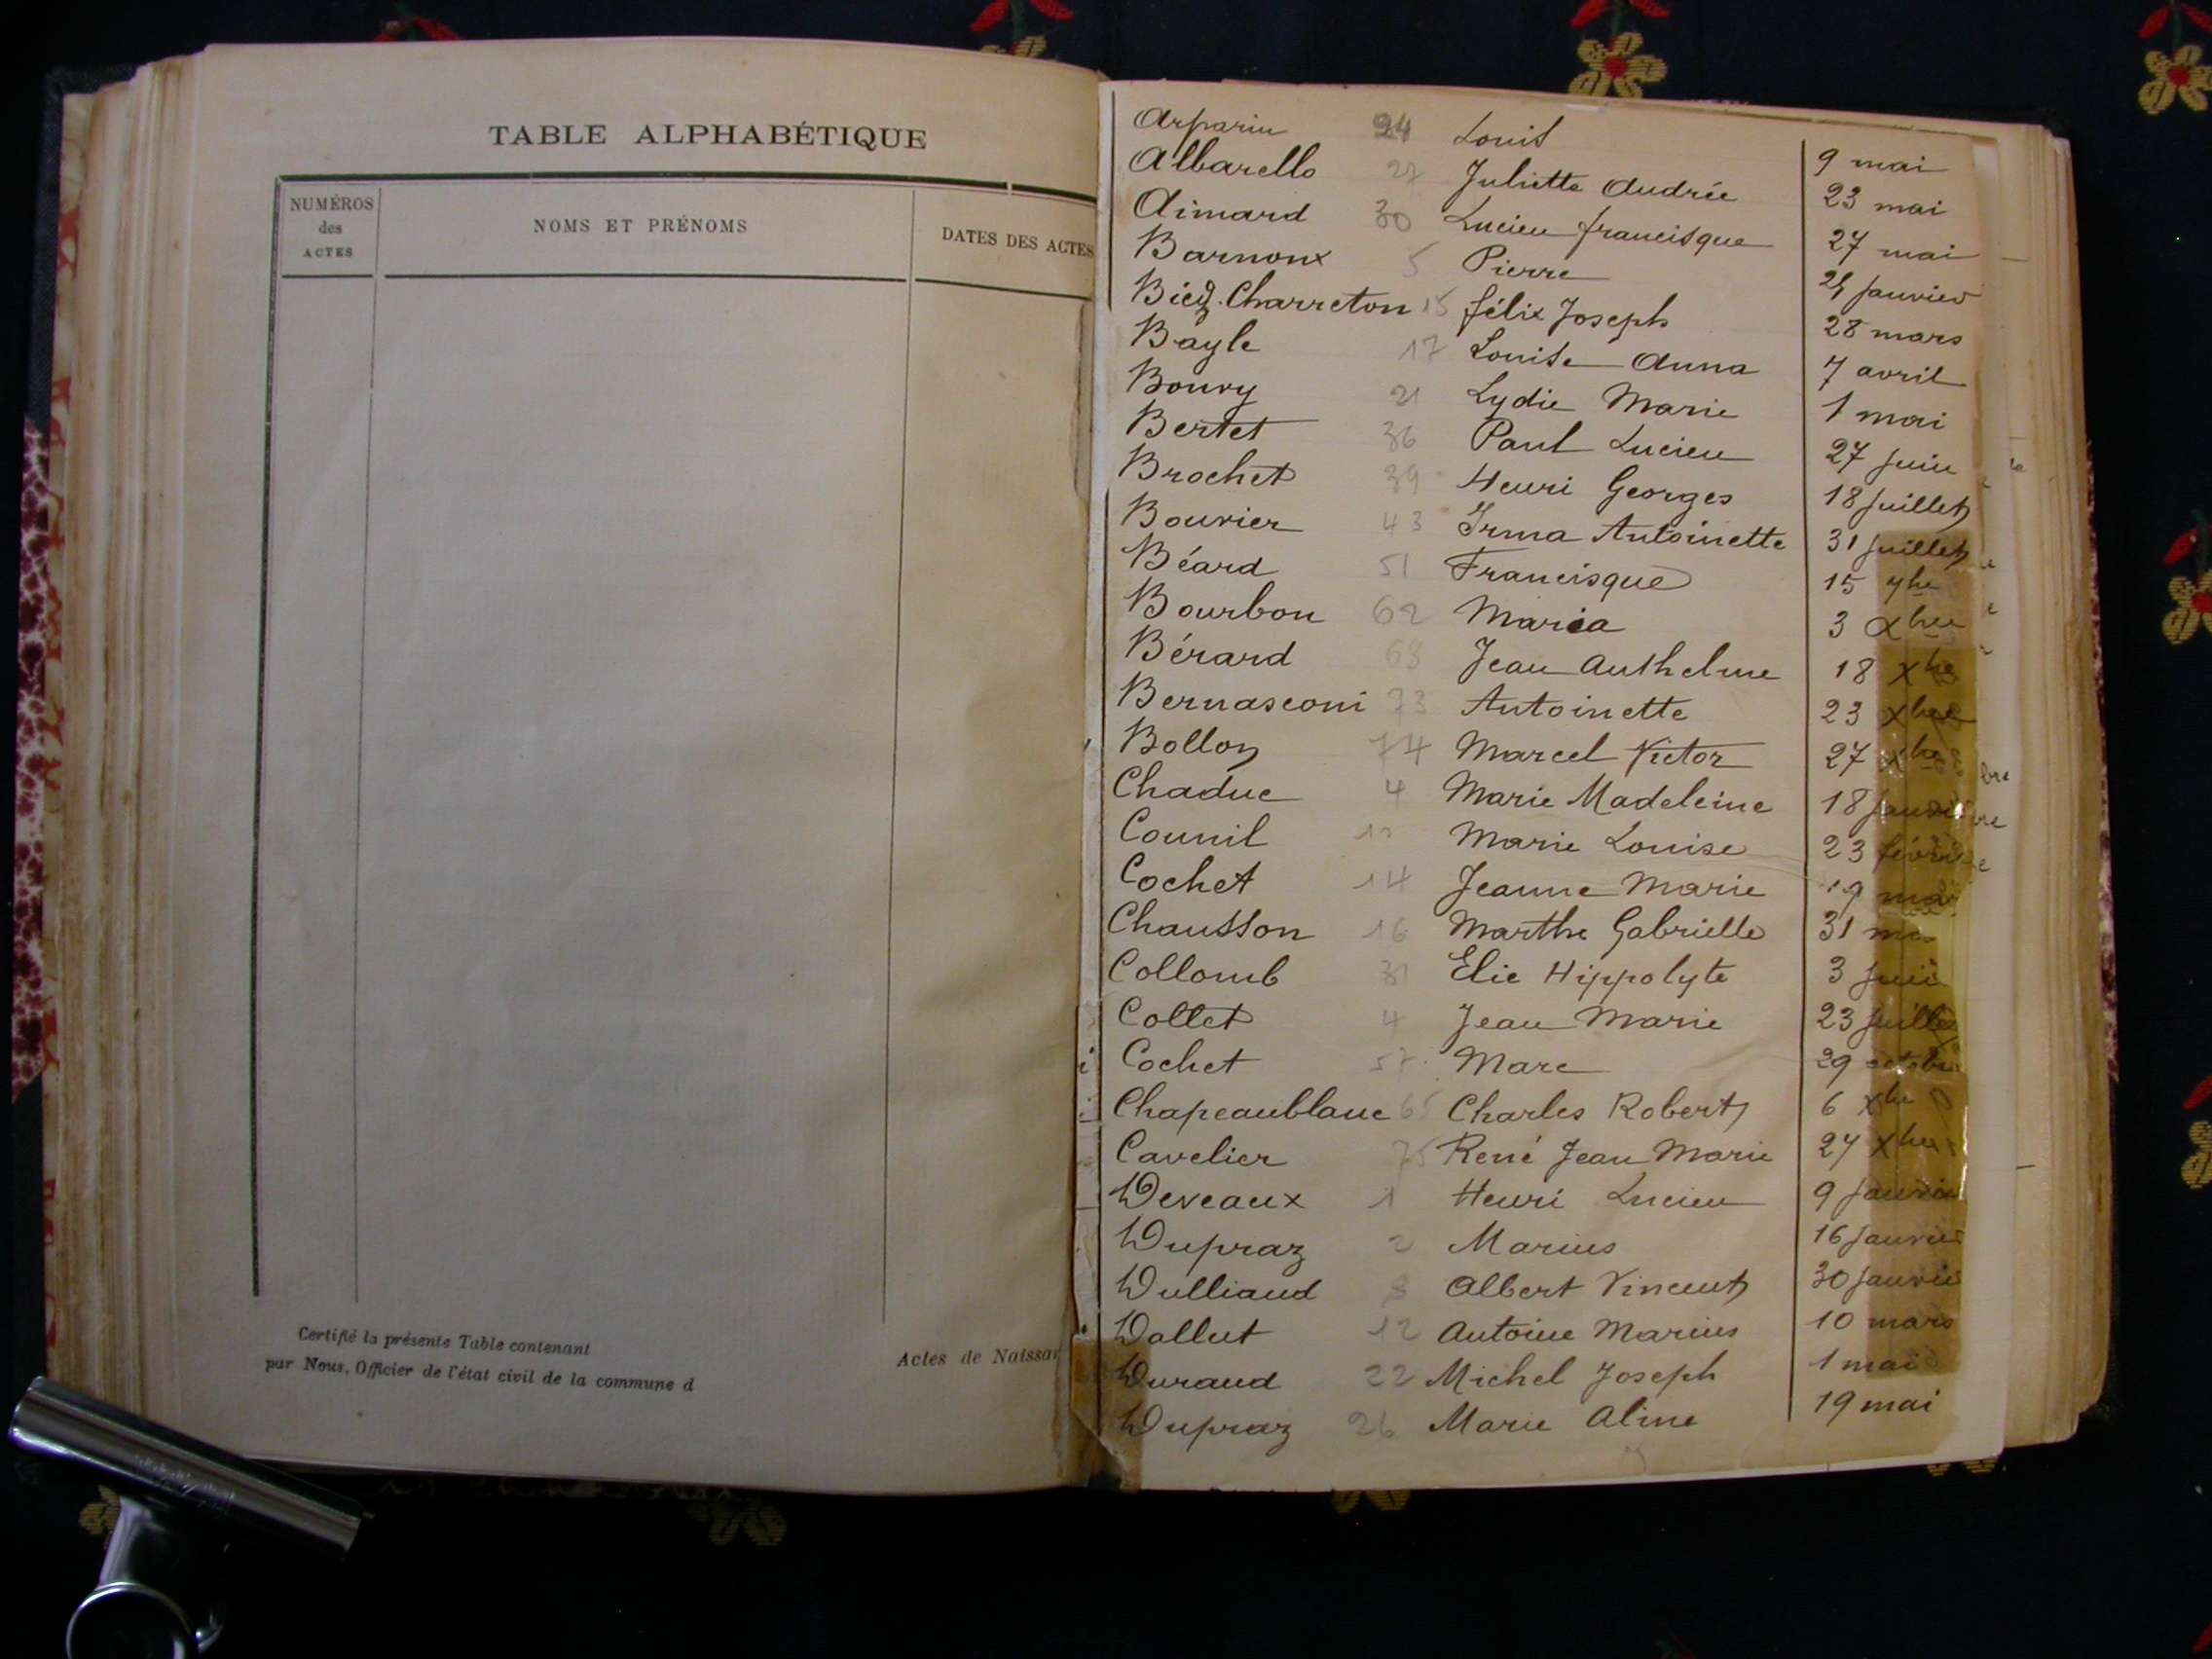 TABLE ALPHABÉTIQUE
NUMÉROS
des
ACTES
NOMS ET PRÉNOMS
DATES DES ACTES
Certifié la présente Table contenant
Actes de Naissa
par Nous, Officier de l'état civil de la commune d
Arparin 24 Louis 9 mai
Albarello 27 Juliette Andrée 23 mai
Aimard 30 Lucien francisque 27 mai
Barnoux 5 Pierre 21 Janvier
Bied. Charreton 15 félix Joseph 28 mars
Bayle 17 Louise Anna 7 avril
Bouvy 21 Lydie Marie 1 mai
Bertet 36 Paul Lucien 27 Juin
Brochet 39 Henri Georges 18 Juillet
Bouvier 43 Irma Antoinette 31 Juillet
Béard 51 Francisque 15 7bre
Bourbon 62 Maria 3 Xbre
Bérard 68 Jean Anthelme 18 Xbre
Bernasconi 73 Antoinette 23 Xbre
Bollon 74 Marcel Victor 27 Xbre
Chaduc 4 Marie Madeleine 18 Janvier
Counil 10 Marie Louise 23 février
Cochet 14 Jeanne Marie 19
Chausson 16 Marthe Gabrielle 31
Collomb 31 Elie Hippolyte 3 Juin
Collet 4 Jean Marie 23 Juillet
Cochet 57 Marc 29 octobre
Chapeaublanc 65 Charles Robert 6 Xbre
Cavelier 75 René Jean Marie 27 Xbre
Deveaux 1 Henri Lucien 9 Janvier
Dupraz 2 Marius 16 Janvier
Dulliand 8 Albert Vincent 30 Janvier
Dallut 12 Antoine Marius 10 mars
Durand 22 Michel Joseph 1 mai
Dupraz 26 Marie Aline 19 mai